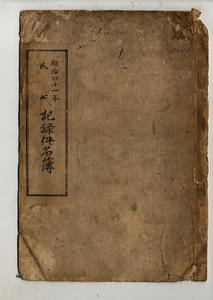 明治四十一年
民 公
記録件名簿